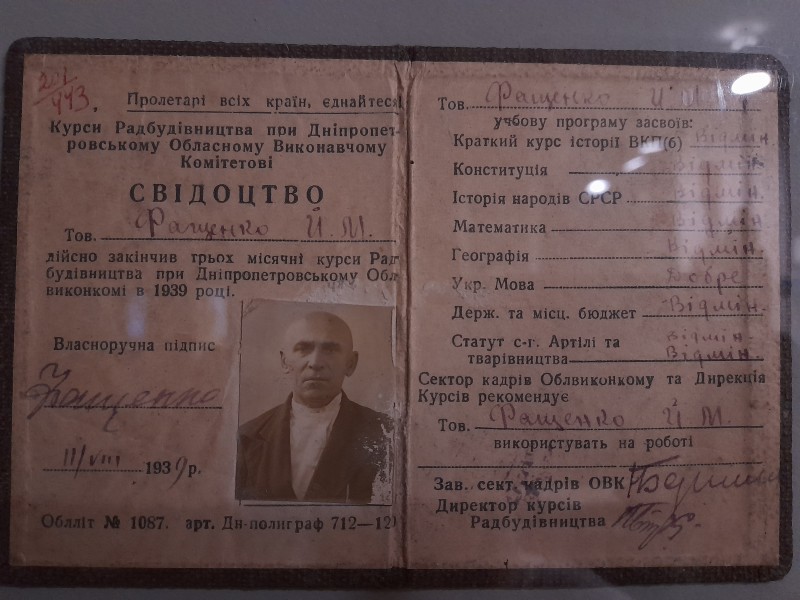 201/443.
Пролетарі всіх країн, єднайтеся
Курси Радбудівництва при Дніпропет-
ровському Обласному Виконавчому
Комітетові
СВІДОЦТВО
Тов. Фащенко Й. М.
дійсно закінчив трьох місячні курси Рад
будівництва при Дніпропетровському Обл
виконкомі в 1939 році.
Власноручна підпис
Фащенко
11/VIII 1939 р.
Облліт № 1087. арт. Дн-полиграф 712—12
Тов. Фащенко Й. М.
учбову програму засвоїв:
Краткий курс історії ВКП(б) Відмін.
Конституція Відмін.
Історія народів СРСР Відмін.
Математика Відмін.
Географія Відмін.
Укр. Мова Добре
Держ. та місц. бюджет Відмін.
Статут с-г. Артілі та Відмін.
тварівництва Відмін.
Сектор кадрів Облвиконкому та Дирекція
Курсів рекомендує
Тов. Фащенко Й. М.
використувать на роботі
Зав. сект. кадрів ОВК
Директор курсів
Радбудівництва